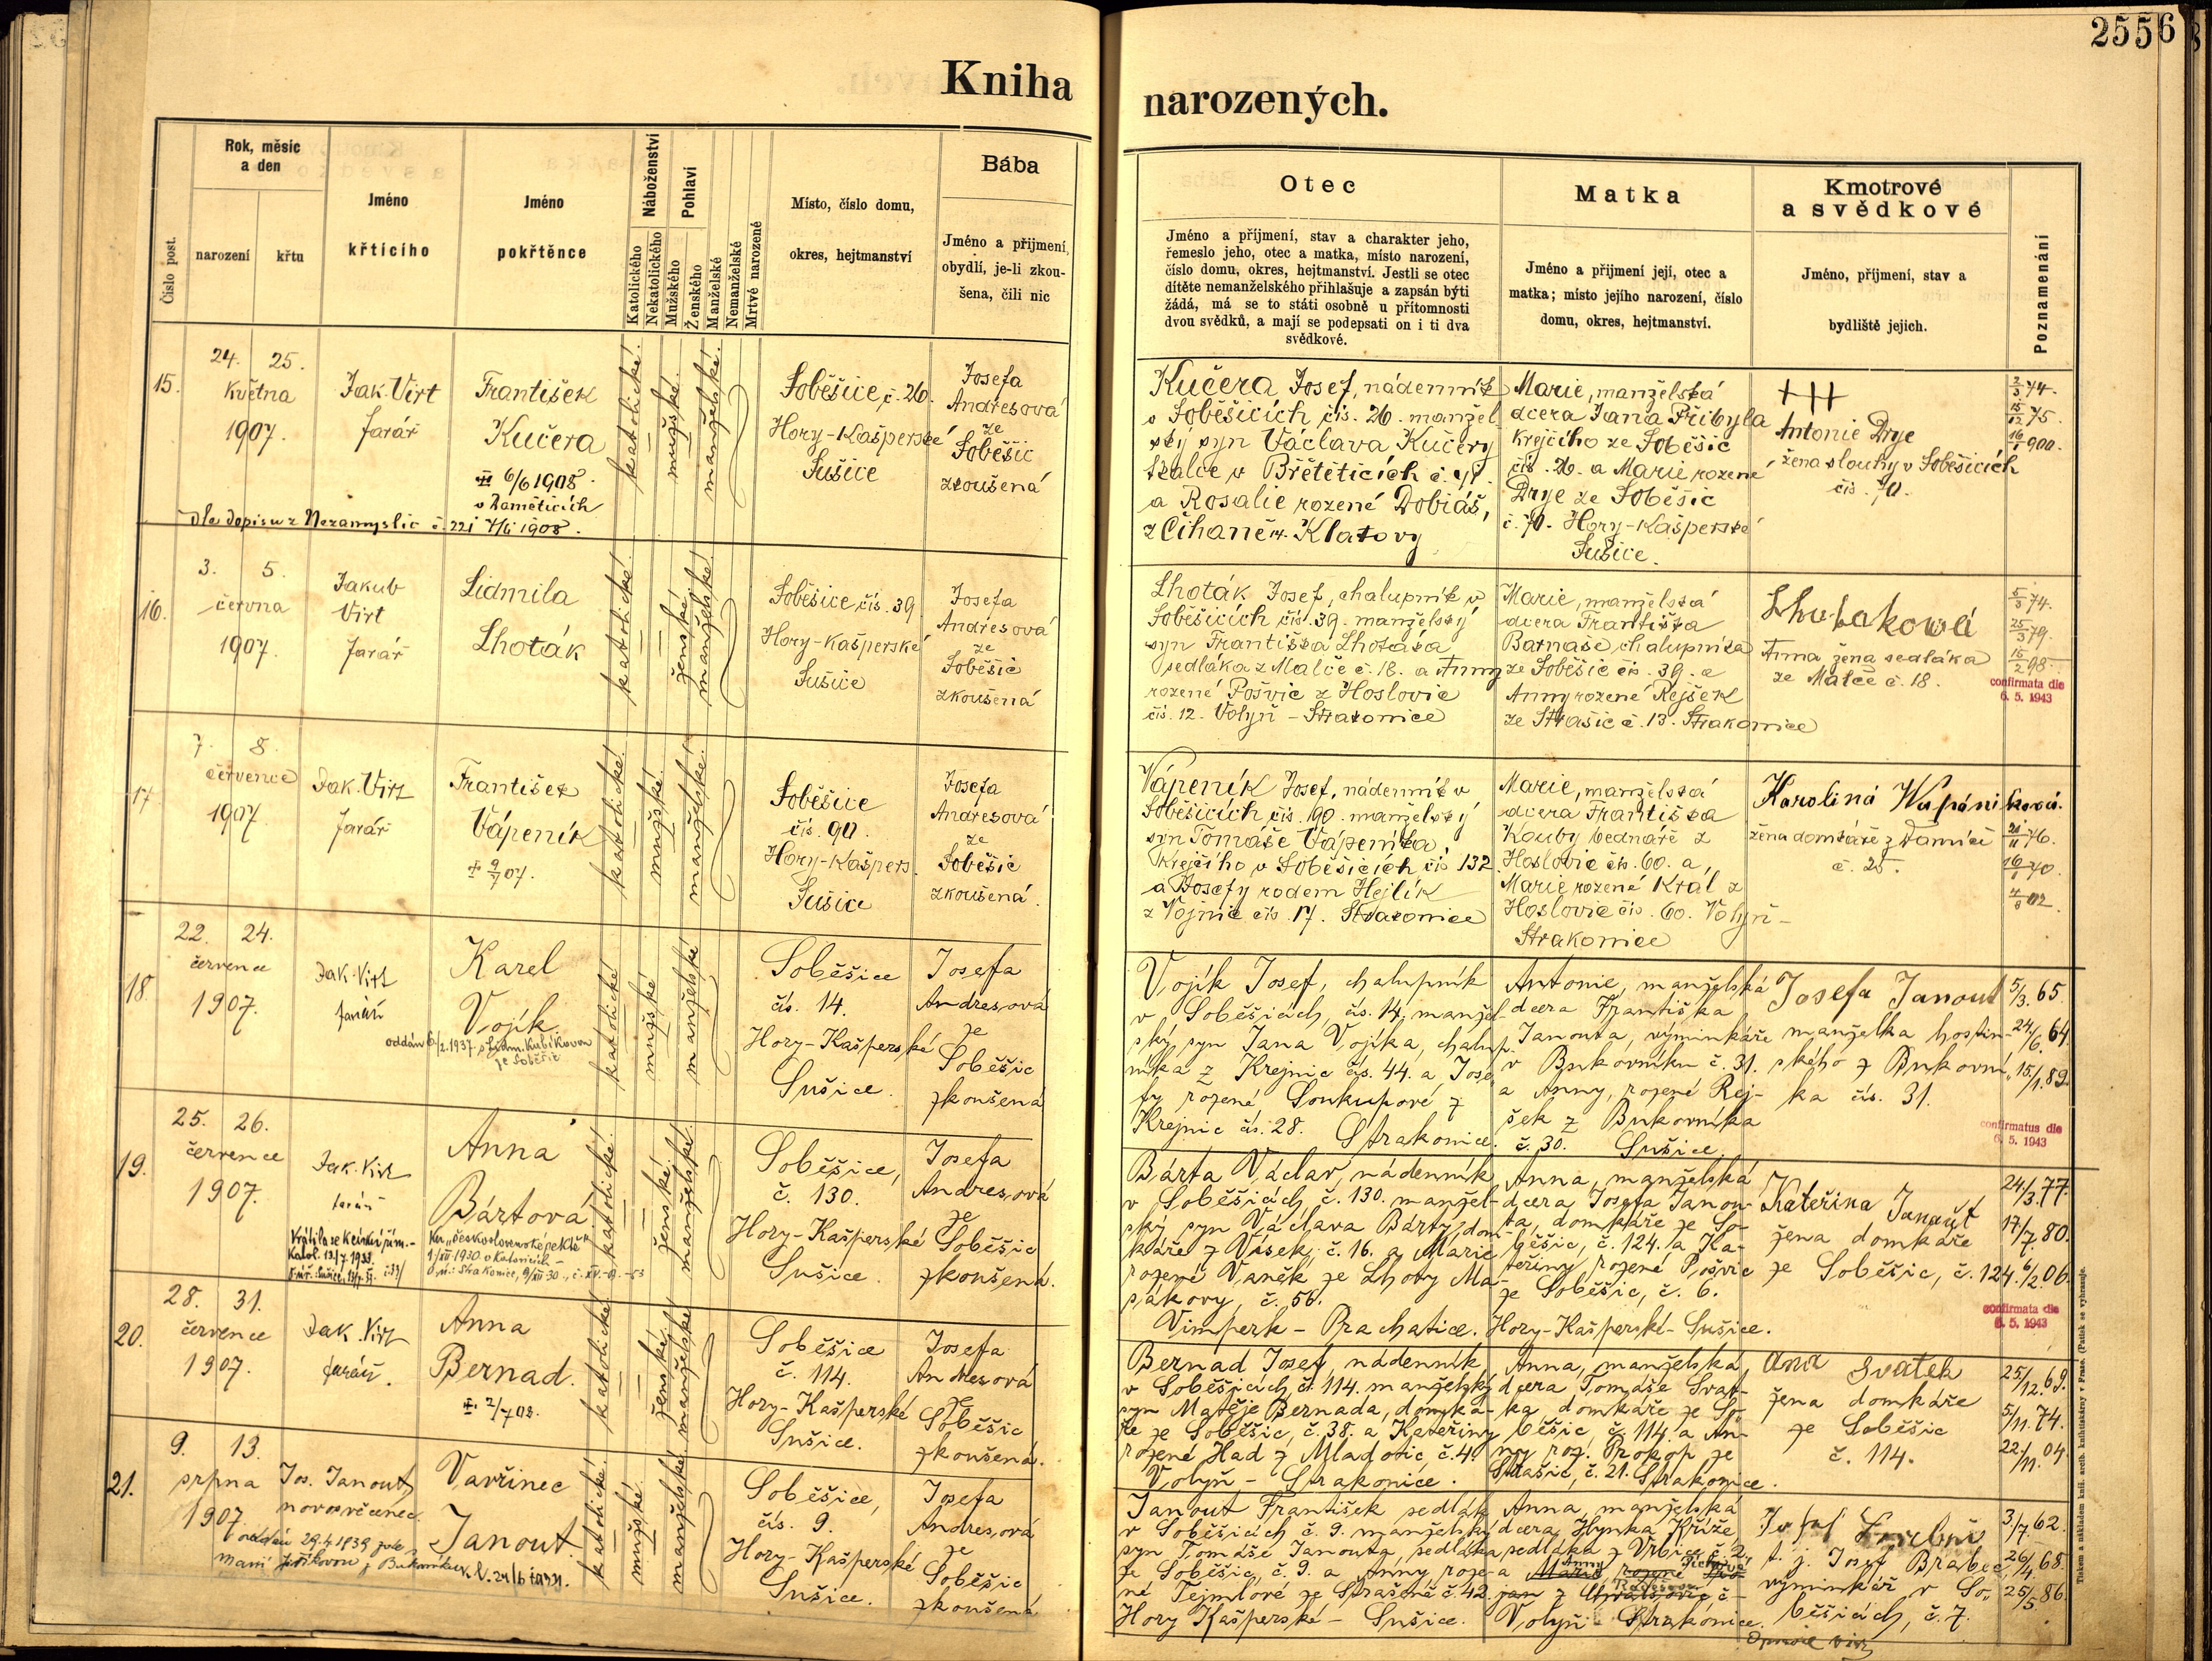 2556
Kniha narozených.
Číslo post.
Rok, měsíc
a den
narození
křtu
Jméno
křtícího
Jméno
pokřtěnce
Náboženství
Katolického
Nekatolického
Pohlaví
Mužského
Ženského
Manželské
Nemanželské
Mrtvě narozené
Místo, číslo domu,
okres, hejtmanství
Bába
Jméno a přijmení,
obydlí, je-li zkou-
šena, čili nic
Otec
Jméno a příjmení, stav a charakter jeho,
řemeslo jeho, otec a matka, místo narození,
číslo domu, okres, hejtmanství. Jestli se otec
dítěte nemanželského přihlašuje a zapsán býti
žádá, má se to státi osobně u přítomnosti
dvou svědků, a mají se podepsati on i ti dva
svědkové.
Matka
Jméno a přijmení její, otec a
matka; místo jejího narození, číslo
domu, okres, hejtmanství.
Kmotrové
a svědkové
Jméno, příjmení, stav a
bydliště jejich.
Poznamenání
15.
24. 25.
května
1907.
Jak. Virt
farář
František
Kučera
6/6 1908.
dle dopisu z Nezamyslic č. 221
katolické
mužské
manželské
Soběšice, č. 26.
Hory-Kašperské
Sušice
Josefa
Andresová
ze
Soběšic
zkoušená
Kučera Josef, nádenník
v Soběšicích, čís. 26. manžel
ský syn Václava Kučery
a Rosalie rozené Dobiáš,
z Čihaně 14. Klatovy
Marie, manželská
dcera Jana Přibyla
krejčího ze Soběšic
čís. 26. a Marie rozené
Drye ze Soběšic
č. 70. Hory-Kašperské
Sušice.
+++
Antonie Drye
žena slouhy v Soběšicích
čís. 70.
16.
3. 5.
června
1907.
Jakub
Virt
farář
Lidmila
Lhoták
katolické
ženské
manželské
Soběšice, čís. 39
Hory-Kašperské
Sušice
Josefa
Andresová
ze
Soběšic
zkoušená
Lhoták Josef, chalupník v
Soběšicích čís. 39. manželský
syn Františka Lhotáka
sedláka z Malče č. 18. a Anny
rozené Pošvic z Hoslovic
čís. 12. Volyň - Strakonice
Marie, manželská
dcera Františka
Barnaše chalupníka
ze Soběšic čís. 39. a
Anny rozené Rejšek
ze Strašic č. 13. Strakonice
Lhotakowá
Anna žena sedláka
ze Malče č. 18.
confirmata die
6. 5. 1943
17
7. 8.
července
1907.
Jak. Virt
farář
František
Vápeník
katolické
mužské
manželské
Soběšice
čís. 90.
Hory-Kašpers.
Sušice
Josefa
Andresová
ze
Soběšic
zkoušená.
Vápeník Josef, nádenník v
Soběšicích čís. 90. manželský
syn Tomáše Vápeníka,
krejčího v Soběšicích čís 132
a Josefy rodem Hejlík
z Vojnic čís. 17. Strakonice
Marie, manželská
dcera Františka
Kouby bednáře z
Hoslovic čís. 60. a,
Marie rozené Král z
Hoslovic čís. 60. Volyň-
Strakonice
Karolina
žena domkáře z
č. 25.
18.
22. 24.
července
1907.
Jak. Virt
farář
Karel
Vojík.
oddán 6/2. 1937 s Lidm. Kubíkovou
ze Soběšic
katolické
mužské
manželské
Soběšice
čís. 14.
Hory-Kašperské
Sušice.
Josefa
Andresová
ze
Soběšic
zkoušená
Vojík Josef, chalupník
v Soběšicích, čís. 14, manžel-
ský syn Jana Vojíka, chalup-
níka z Krejnic čís. 44. a Jose
fy rozené Soukupové z
Krejnic čís. 28. Strakonice.
Antonie, manželská
dcera Františka
Janouta, výminkáře
v Bukovníku č. 31.
a Anny, rozené Rej-
šek z Bukovníka
č. 30. Sušice.
Josefa Janout
manželka hostin-
ského z Bukovní-
ka čís. 31.
5/3. 65.
24/6. 64
15/1. 89
confirmatus die
6. 5. 1943
19.
25. 26.
července
1907.
Jak. Virt
farář
Anna
Bártová
katolické
ženské
manželské
Soběšice,
č. 130.
Hory-Kašperské
Sušice.
Josefa
Andresová
ze
Soběšic
zkoušená.
Bárta Václav, nádenník
v Soběšicích, č. 130. manžel-
ský syn Václava Bárty, dom-
káře z Vísek, č. 16. a Marie
rozené Vaněk ze Lhoty Ma-
sákovy, č. 56.
Vimperk - Prachatice.
Anna, manželská
dcera Josefa Janou-
ta, domkáře ze So-
běšic, č. 124. a Ka-
teřiny rozené Pošvic
ze Soběšic, č. 6.
Hory-Kašperské - Sušice.
Kateřina Janout
žena domkáře
ze Soběšic, č. 124.
24/3. 77.
17/7. 80.
6/2. 06.
confirmata die
6. 5. 1943
20.
28. 31.
července
1907.
Jak. Virt
farář.
Anna
Bernad.
katolické
ženské
manželské
Soběšice
č. 114.
Hory-Kašperské
Sušice.
Josefa
Andresová
ze
Soběšic
zkoušená.
Bernad Josef, nádenník
v Soběšicích, č. 114. manželský
syn Matěje Bernada, domká-
ře ze Soběšic, č. 38. a Kateřiny
rozené Had z Mladotic, č. 4.
Volyň - Strakonice.
Anna, manželská
dcera Tomáše Svat-
ka domkáře ze So-
běšic, č. 114. a An-
ny roz. Prokop ze
Strašic, č. 21. Strakonice.
Ana Svatek
žena domkáře
ze Soběšic
č. 114.
25/12. 69.
5/11. 74.
22/11. 04.
21.
9. 13.
srpna
1907.
Jos. Janout
novosvěcenec.
Vavřinec
Janout.
katolické
mužské
manželské
Soběšice,
čís. 9.
Hory-Kašperské
Sušice.
Josefa
Andresová
ze
Soběšic
zkoušená
Janout František sedlák
v Soběšicích, č. 9. manželský
syn Tomáše Janouta, sedláka
ze Soběšic, č. 9. a Anny, roze-
né Tejmlové ze Strašíně č. 42.
Hory Kašperské - Sušice.
Anna, manželská
dcera Hynka Kříže,
sedláka z Vrbice č. 2.
a Marie rozené
Anny
Volyň - Strakonice.
Josef
t. j. Josef Brabec,
výminkář v So-
běšicích, č. 7.
3/7. 62.
26/4. 68
25/5. 86.